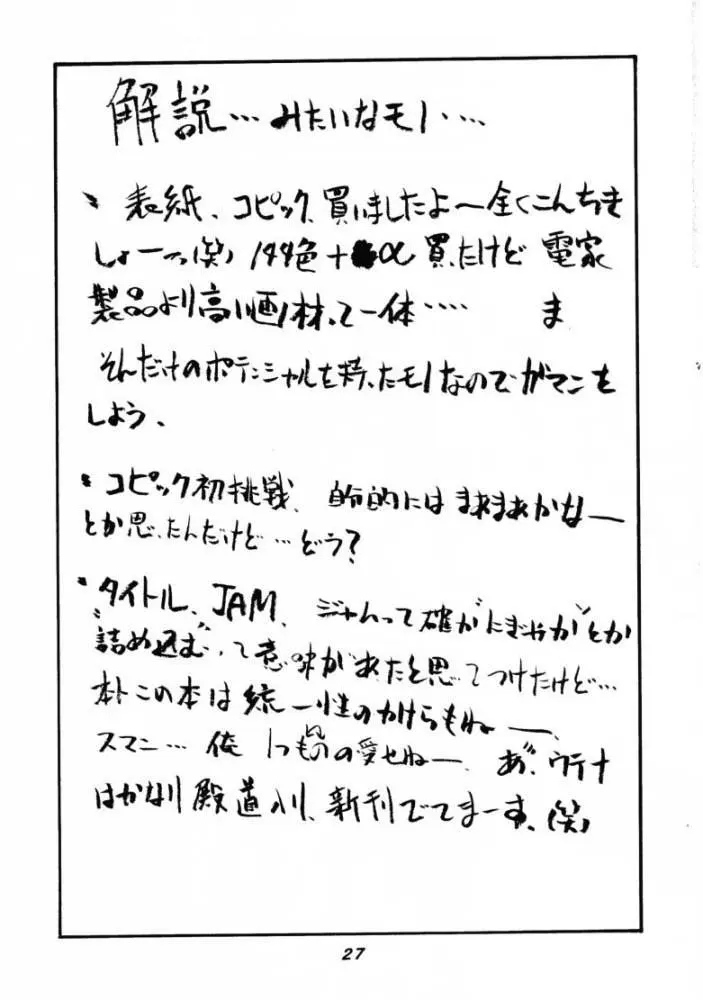 解説…みたいなモノ‥‥
・表紙、コピック、買いましたよ〜全くこんちき
しょーっ(笑) 144色+α買ったけど 電家
製品より高い画材って一体‥‥ ま
そんだけのポテンシャルを持ったモノなのでガマンを
しよう、
・コピック初挑戦、自分的にはまあまあかなー
とか思ったんだけど…どう?
・タイトル、JAM、ジャムって確か"にぎやか"とか
"詰め込む"って意味があたと思ってつけたけど…
本トこの本は統一性のかけらもねー、
スマン… 俺 1つものの愛せねー、あ"、ウテナ
はかなり殿道入り、新刊でてまーす、(笑)
27